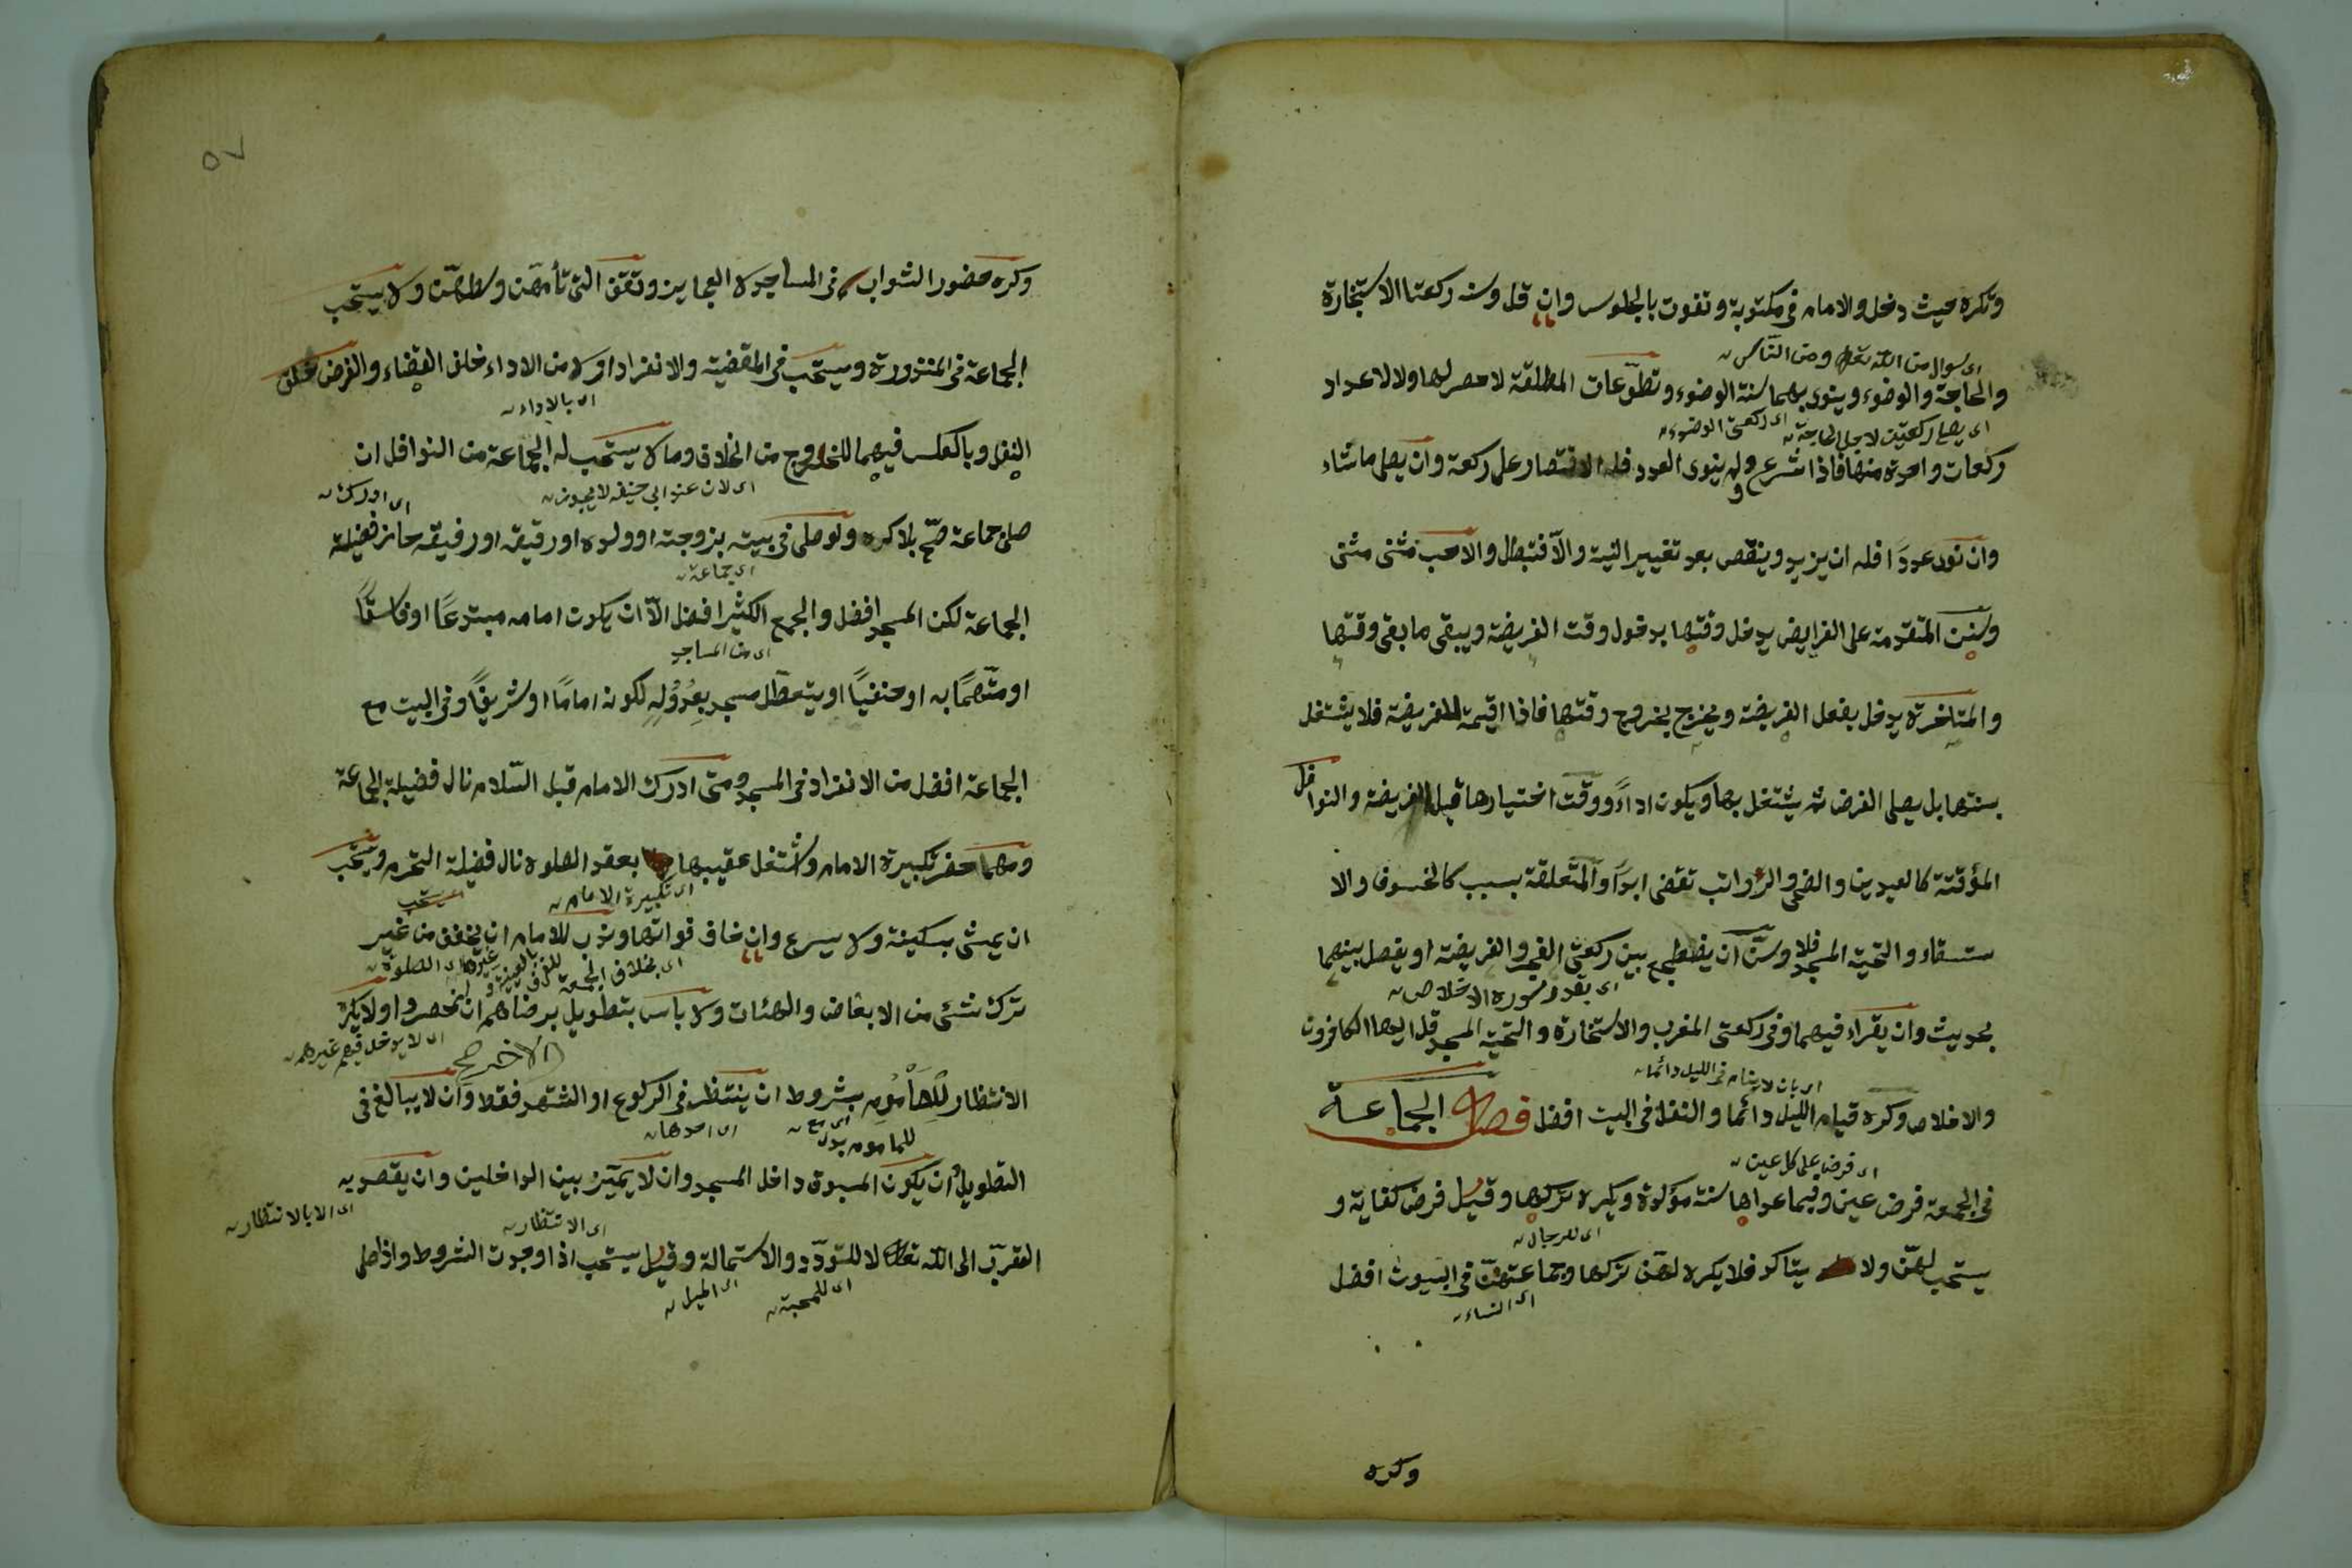 وتكره حيث دخل والامام في مكتوبة وتفوت بالجلوس وان قل وسنه ركعتا الاستخارة
اى سوال من الله تعالى ومن الناس
والحاجة والوضوء وينوى بهما سنة الوضوء وتطوّعات المطلقة لا حصر لها ولا لاعداد
اى يصلى ركعتين لاجل الحاجة اى ركعتى الوضوء
ركعات واحدة منها فاذا شرع ولم ينوى العدد فله الاقتصار على ركعة وان يصلى ماشاء
وان نوى عدداً فله ان يزيد وينقص بعد تغيير النية والاّ فتبطل والاحب مثنى مثنى
وسنن المتقدمة على الفرايض يدخل وقتها بدخول وقت الفريضة ويبقى ما بقى وقتها
والمتاخرة يدخل بفعل الفريضة ويخرج بخروج وقتها فاذا اقيمة للفريضة فلا يشتغل
بسنتها بل يصلى الفرض ثم يشتغل بها ويكون اداءً ووقت اختيارها قبل الفريضة والنوافل
المؤقتة كالعيدين والضحى والرّواتب تقضى ابداً والمتعلقة بسبب كالخسوف والا
ستسقاء والتحية المسجد فلا وسنّ ان يضطجع بين ركعتى الفجر والفريضة او يفصل بينهما
اى يقرء سورة الاخلاص
بحديث وان يقراء فيهما وفى ركعتى المغرب والاستخارة والتحية المسجد قل ايها الكافرون
اى بان لا ينام فى الليل دائما
والاخلاص وكره قيام الليل دائما والنفل فى البيت افضل فصل الجماعة
اى فرض على كل عين
فى الجمعة فرض عين وفيما عداها سنة مؤكدة ويكره تركها وقيل فرض كفاية و
اى للرجال
يستحب لهنّ ولا يتاكد فلا يكره لهنّ تركها وجماعتهنّ فى البيوت افضل
اى النساء
وكره
٥٧
وكره حضور الشواب فى المساجد لا العجايز وتقف التى تأمهن وسطهنّ ولا يستحب
الجماعة فى المنذورة ويستحب فى المقضية والانفراد اولا من الاداء خلف القضاء والفرض خلف
اى بالاداء
النفل وبالعكس فيهما للخروج من الخلاف وما لا يستحب له الجماعة من النوافل ان
اى لان عند ابى حنيفه لا يجوز اى ادرك
صلى جماعة صّح بلا كره ولو صلى فى بيته بزوجته او ولده او رقيقه او رفيقه حاز فضيلة
اى جماعة
الجماعة لكن المسجد افضل والجمع الكثير افضل الاّ ان يكون امامه مبتدعاً او فاسقاً
اى من المساجد
او متّهماً به او حنفياً او يتعطّل مسجد بعدوله لكونه اماماً او شريفاً وفى البيت مع
الجماعة افضل من الانفراد فى المسجد ومتى ادرك الامام قبل السّلام نال فضيلة الجماعة
ومهما حضر تكبيرة الامام واشتغل عقيبها بعقد الصلوة نال فضيلة التحرم ويستحب
اى تكبيرة الامام اى يستحب
ان يمشى بسكينة ولا يسرع وان خاف فواتها وندب للامام ان يخفف من غير
اى بخلاف الجمعة
ترك شئى من الابعاض والهئات ولا باس بتطويل برضاهم ان انحصروا ولا يكره
اى لا يدخل فيهم غيرهم
الاخر صح
الانتظار للمأموم بشروط ان ينتظر فى الركوع او التشهد فقط وان لا يبالغ فى
للماموم بدل اى مع اى احدها
التطويل ان يكون المسبوق داخل المسجد وان لا يميّز بين الداخلين وان يقصد به
اى الانتظار اى الا بالانتظار
التقرّب الى الله تعالى لا للتودّد والاستمالة وقيل يستحب اذا وجدت الشروط واذا صلى
اى للمحبة اى الميل